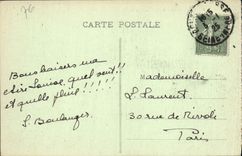 76
CARTE POSTALE
Bons baisers ma
chère Louise, quel vent!!
et quelle pluie!!!!!
S. Boulanger
Mademoiselle
L. Laurent
30 rue de Rivoli
Paris